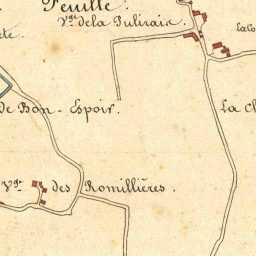 Feuille
Vge de la Puliraie
La Co
te
de Bon-Espoir.
La Ch
Vge des Romillières.